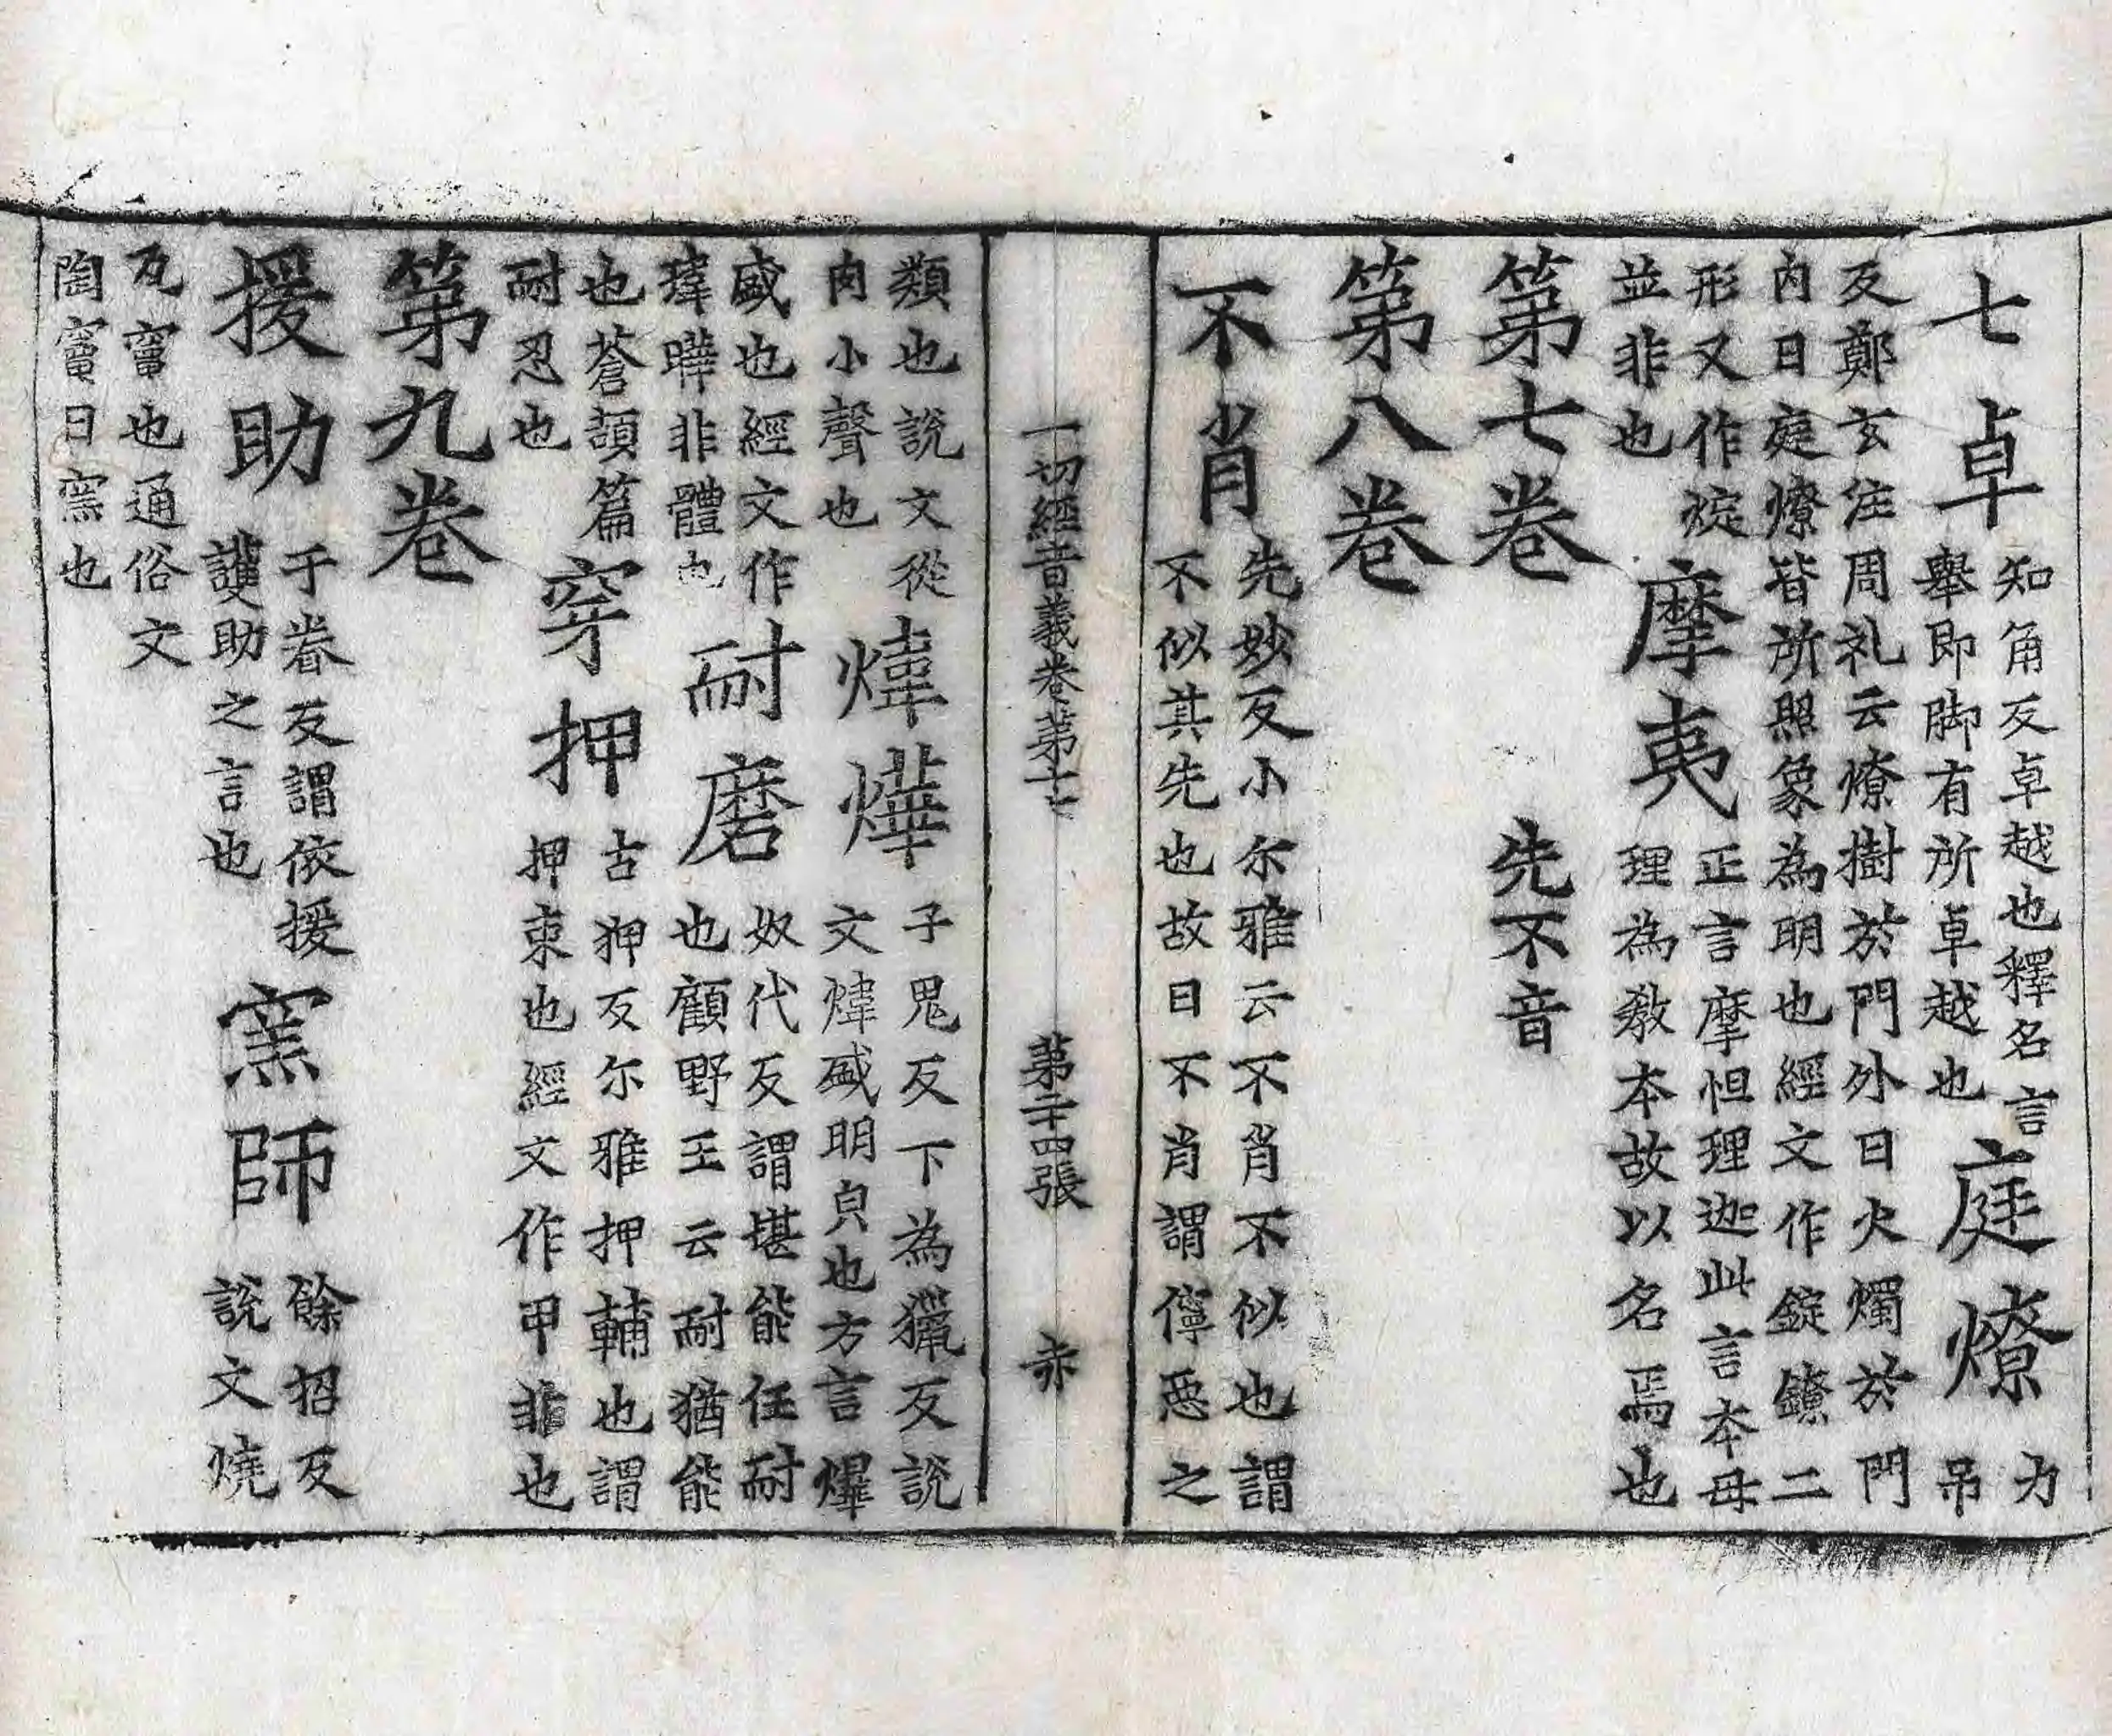 七卓
知角反卓越也釋名言
舉即脚有所卓越也
庭燎
力
吊
反鄭玄注周礼云燎樹於門外曰火燭於門
内曰庭燎皆所照象為明也經文作錠鐐二
形又作烶
並非也
摩夷
正言摩怛理迦此言本母
理為教本故以名焉也
第七卷 先不音
第八卷
不肖
先妙反小尔雅云不肖不似也謂
不似其先也故曰不肖謂儜惡之
一切經音義卷第十七 第二十四張 赤
類也說文從
肉小聲也
煒燁
子鬼反下為獵反說
文煒盛明皃也方言爗
盛也經文作
瑋曄非體也
耐磨
奴代反謂堪能任耐
也顧野王云耐猶能
也蒼頡篇
耐忍也
穿押
古狎反尔雅押輔也謂
押束也經文作甲非也
第九卷
援助
于眷反謂依援
護助之言也
窯師
餘招反
說文燒
瓦竈也通俗文
陶竈曰窯也